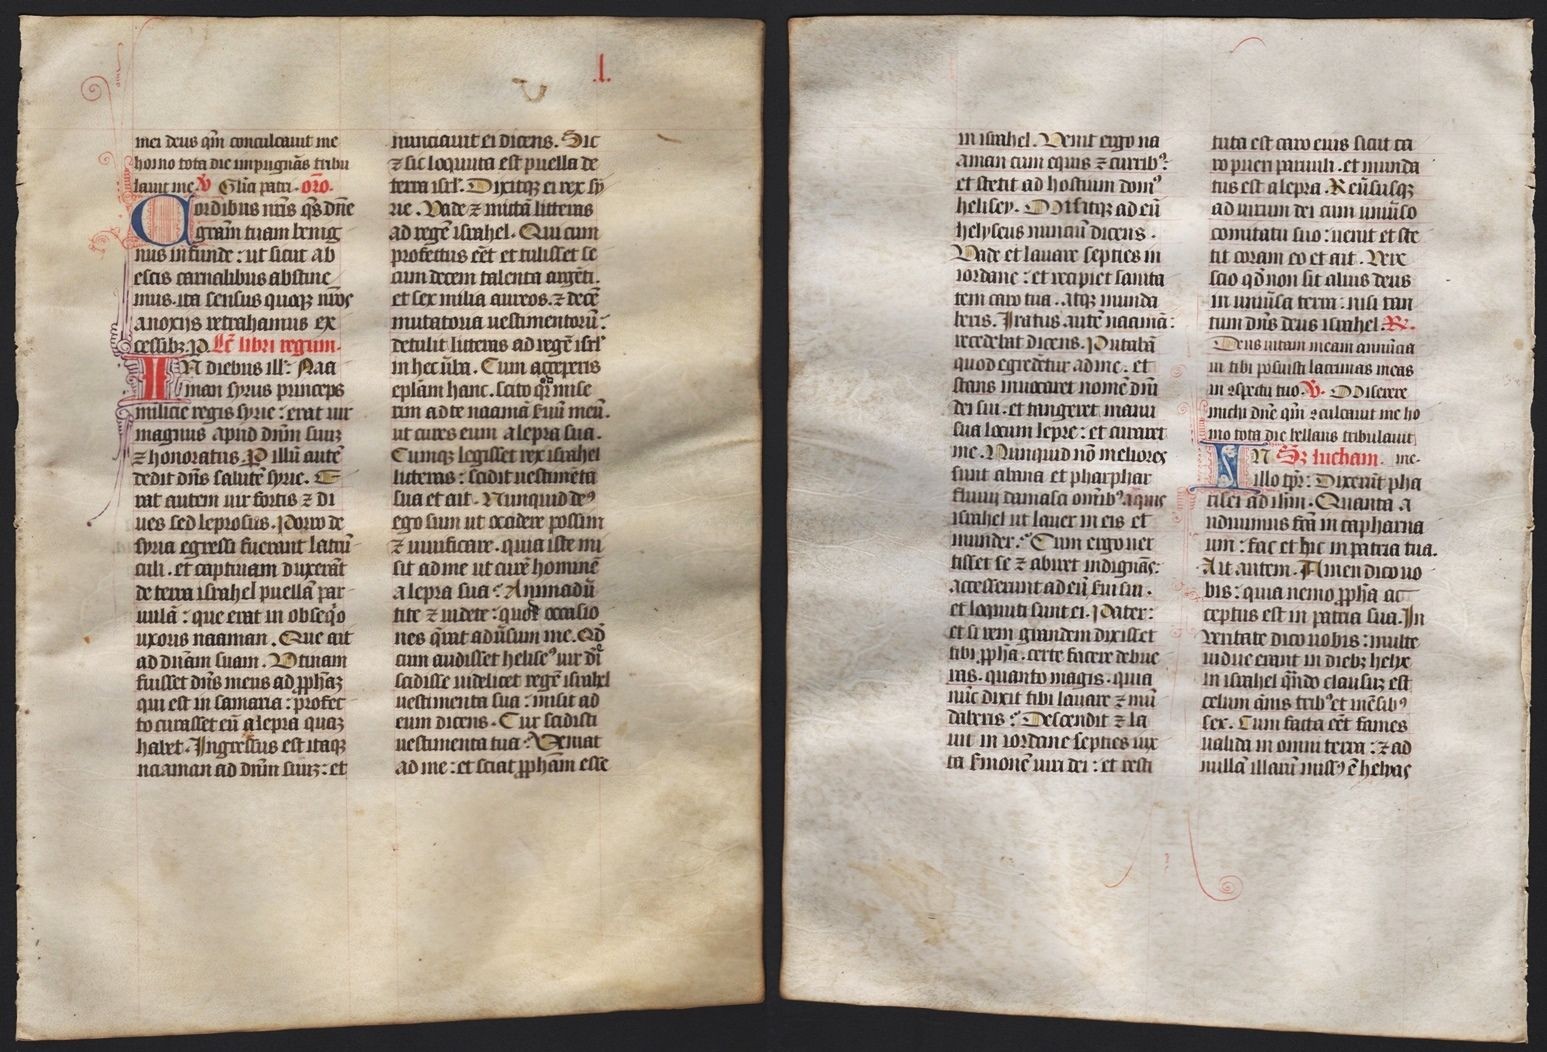 .l.
mei deus qm̄ conculcauit me
homo tota die impugnās tribu
lauit me. V̄ Gl̄ia patri. or̄o.
Cordibus nr̄is qs̄ dn̄e
gram̄ tuam benig
nus infunde : ut sicut ab
escis carnalibus abstine
mus. ita sensus quoqꝫ nr̄os
a noxijs retrahamus ex
cessibꝫ. P. Lc̄ libri regum.
IN diebus ill̄ : Naa
man syrus princeps
milicie regis syrie : erat uir
magnus apud dn̄m suuꝫ
⁊ honoratus. P illū autē
dedit dn̄s salutē syrie. E
rat autem uir fortis ⁊ di
ues sed leprosus. Porro de
syria egressi fuerant latrū
culi . et captiuam duxerāt
de terra israhel puellā par
uulā : que erat in obseqͥo
uxoris naaman . Que ait
ad dn̄am suam . Utinam
fuisset dn̄s meus ad ꝓph̄aꝫ
qui est in samaria : profec
to curasset eū a lepra quaꝫ
habet . Ingressus est itaqꝫ
naaman ad dn̄m suuꝫ : et
nunciauit ei dicens. Sic
⁊ sic loquuta est puella de
terra isrl̄. Dixitqꝫ ei rex sy
rie . Vade ⁊ mittā litteras
ad regē israhel . Qui cum
profectus eēt et tulisset se
cum decem talenta argēti .
et sex milia aureos. ⁊ decē
mutatoria uestimentorū :
detulit litteras ad regē isrl̄
in hec ūba . Cum acceperis
ep̄lam hanc . scito qͦ mise
rim ad te naamā ẜuū meū.
ut cures eum a lepra sua .
Cumqꝫ legisset rex israhel
litteras : scidit uestimēta
sua et ait . Nunquid deꝰ
ego sum ut occidere possim
⁊ uiuificare . quia iste mi
sit ad me ut curē hominē
a lepra sua : Animadū
tite ⁊ uidete : quod occasio
nes q̄rat adūsum me. Qd̄
cum audisset heliseꝰ uir dī
scidisse uidelicet regē israhel
uestimenta sua : misit ad
eum dicens . Cur scidisti
uestimenta tua : Veniat
ad me : et sciat ꝓph̄am esse
in israhel . Venit ergo na
aman cum equis ⁊ curribꝰ :
et stetit ad hostium domꝰ
helisey . Misitqꝫ ad eū
helyseus nunciū dicens .
Vade et lauare septies in
iordane : et recipiet sanita
tem caro tua . atqꝫ munda
beris. Iratus autē naamā :
recedebat dicens. Putabā
quod egredēt̄ur ad me . et
stans inuocaret nomē dn̄i
dei sui . et tangeret manu
sua locum lepre : et curaret
me . Nunquid nō meliores
sunt abana et pharphar
fluuij damasci omībꝰ aquis
israhel ut lauer in eis et
munder : Cum ergo uer
tisset se ⁊ abiret indignās :
accesserunt ad eū ẜui sui .
et loquuti sunt ei . Pater :
et si rem grandem dixisset
tibi ꝓph̄a . certe facere debue
ras . quanto magis . quia
nūc dixit tibi lauare ⁊ mū
daberis : Descendit ⁊ la
uit in iordane septies iux
ta ẜmonē uiri dei : et resti
tuta est caro eius sicut ca
ro pueri paruuli . et munda
tus est a lepra . Reūsusqꝫ
ad uirum dei cum uniūso
comitatu suo : uenit et ste
tit coram eo et ait . Vere
scio qd̄ non sit alius deus
in uniūsa terra : nisi tan
tum dn̄s deus israhel . R.
Deus uitam meam annūcia
ui tibi posuisti lacrimas meas
in ꝯspectu tuo . V̄. Miserere
michi dn̄e qm̄ ꝯculcauit me ho
mo tota die bellans tribulauit
IN Sꝫ lucham. me.
illo tp̄r : Dixerūt pha
risei ad ih̄m . Quanta a
udiuimus fc̄a in capharna
um : fac et hic in patria tua .
Ait autem . Amen dico uo
bis : quia nemo ꝓph̄a ac
ceptus est in patria sua . In
ueritate dico uobis : multe
uidue erant in diebꝫ helye
in israhel qn̄do clausuꝫ est
celum an̄is tribꝰ et mēsibꝰ
sex . Cum facta eēt fames
ualida in omni terra : ⁊ ad
nullā illarū missꝰ ē helyas